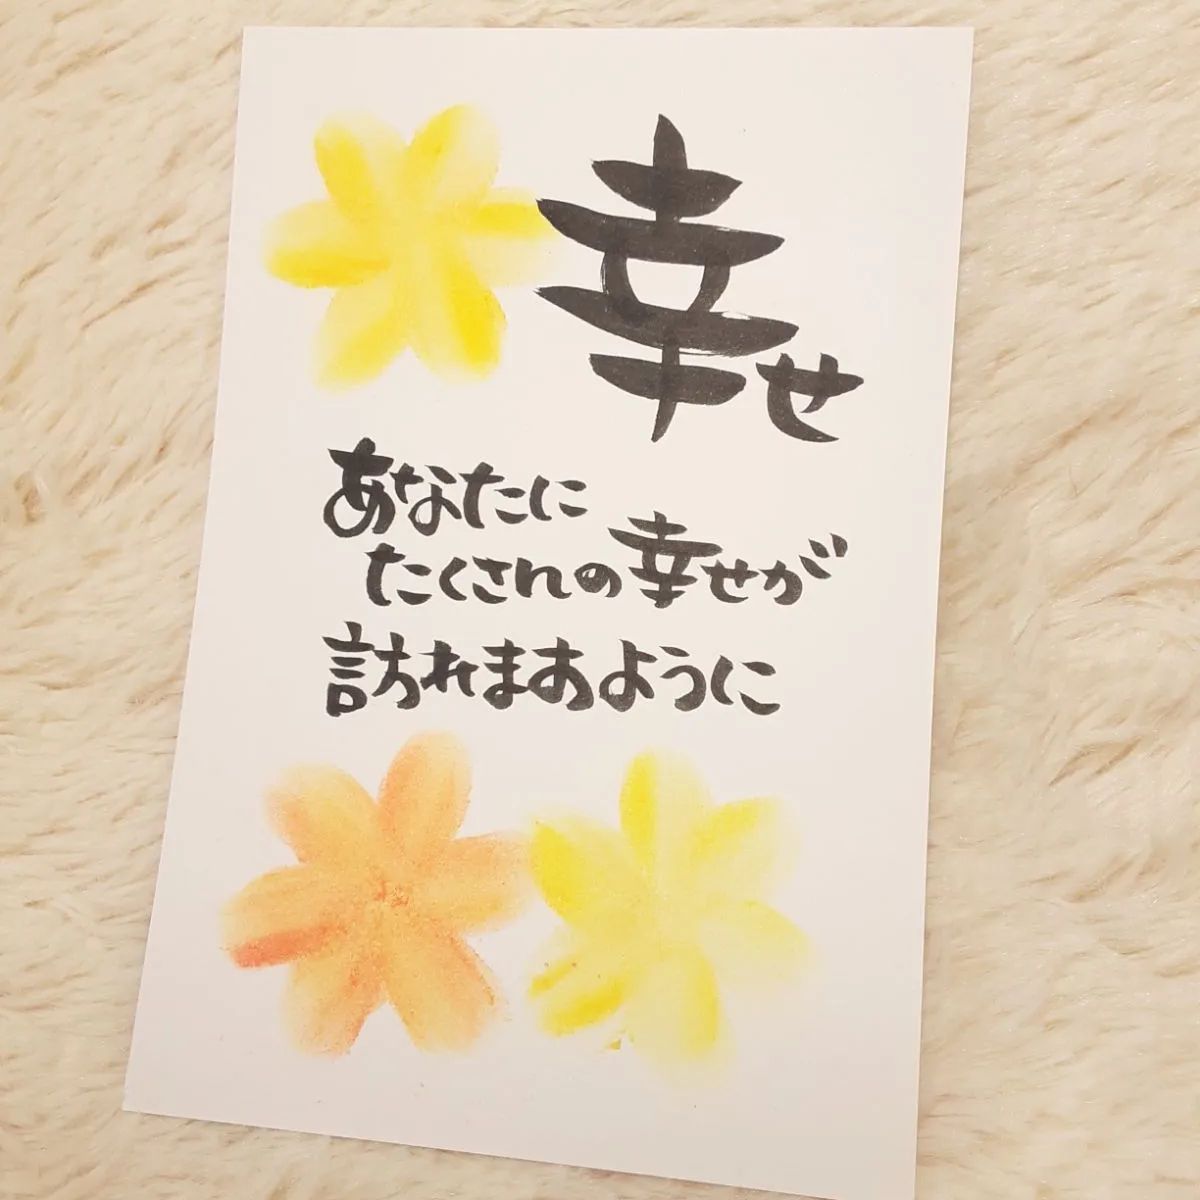 幸せ
あなたに
たくさんの幸せが
訪れますように